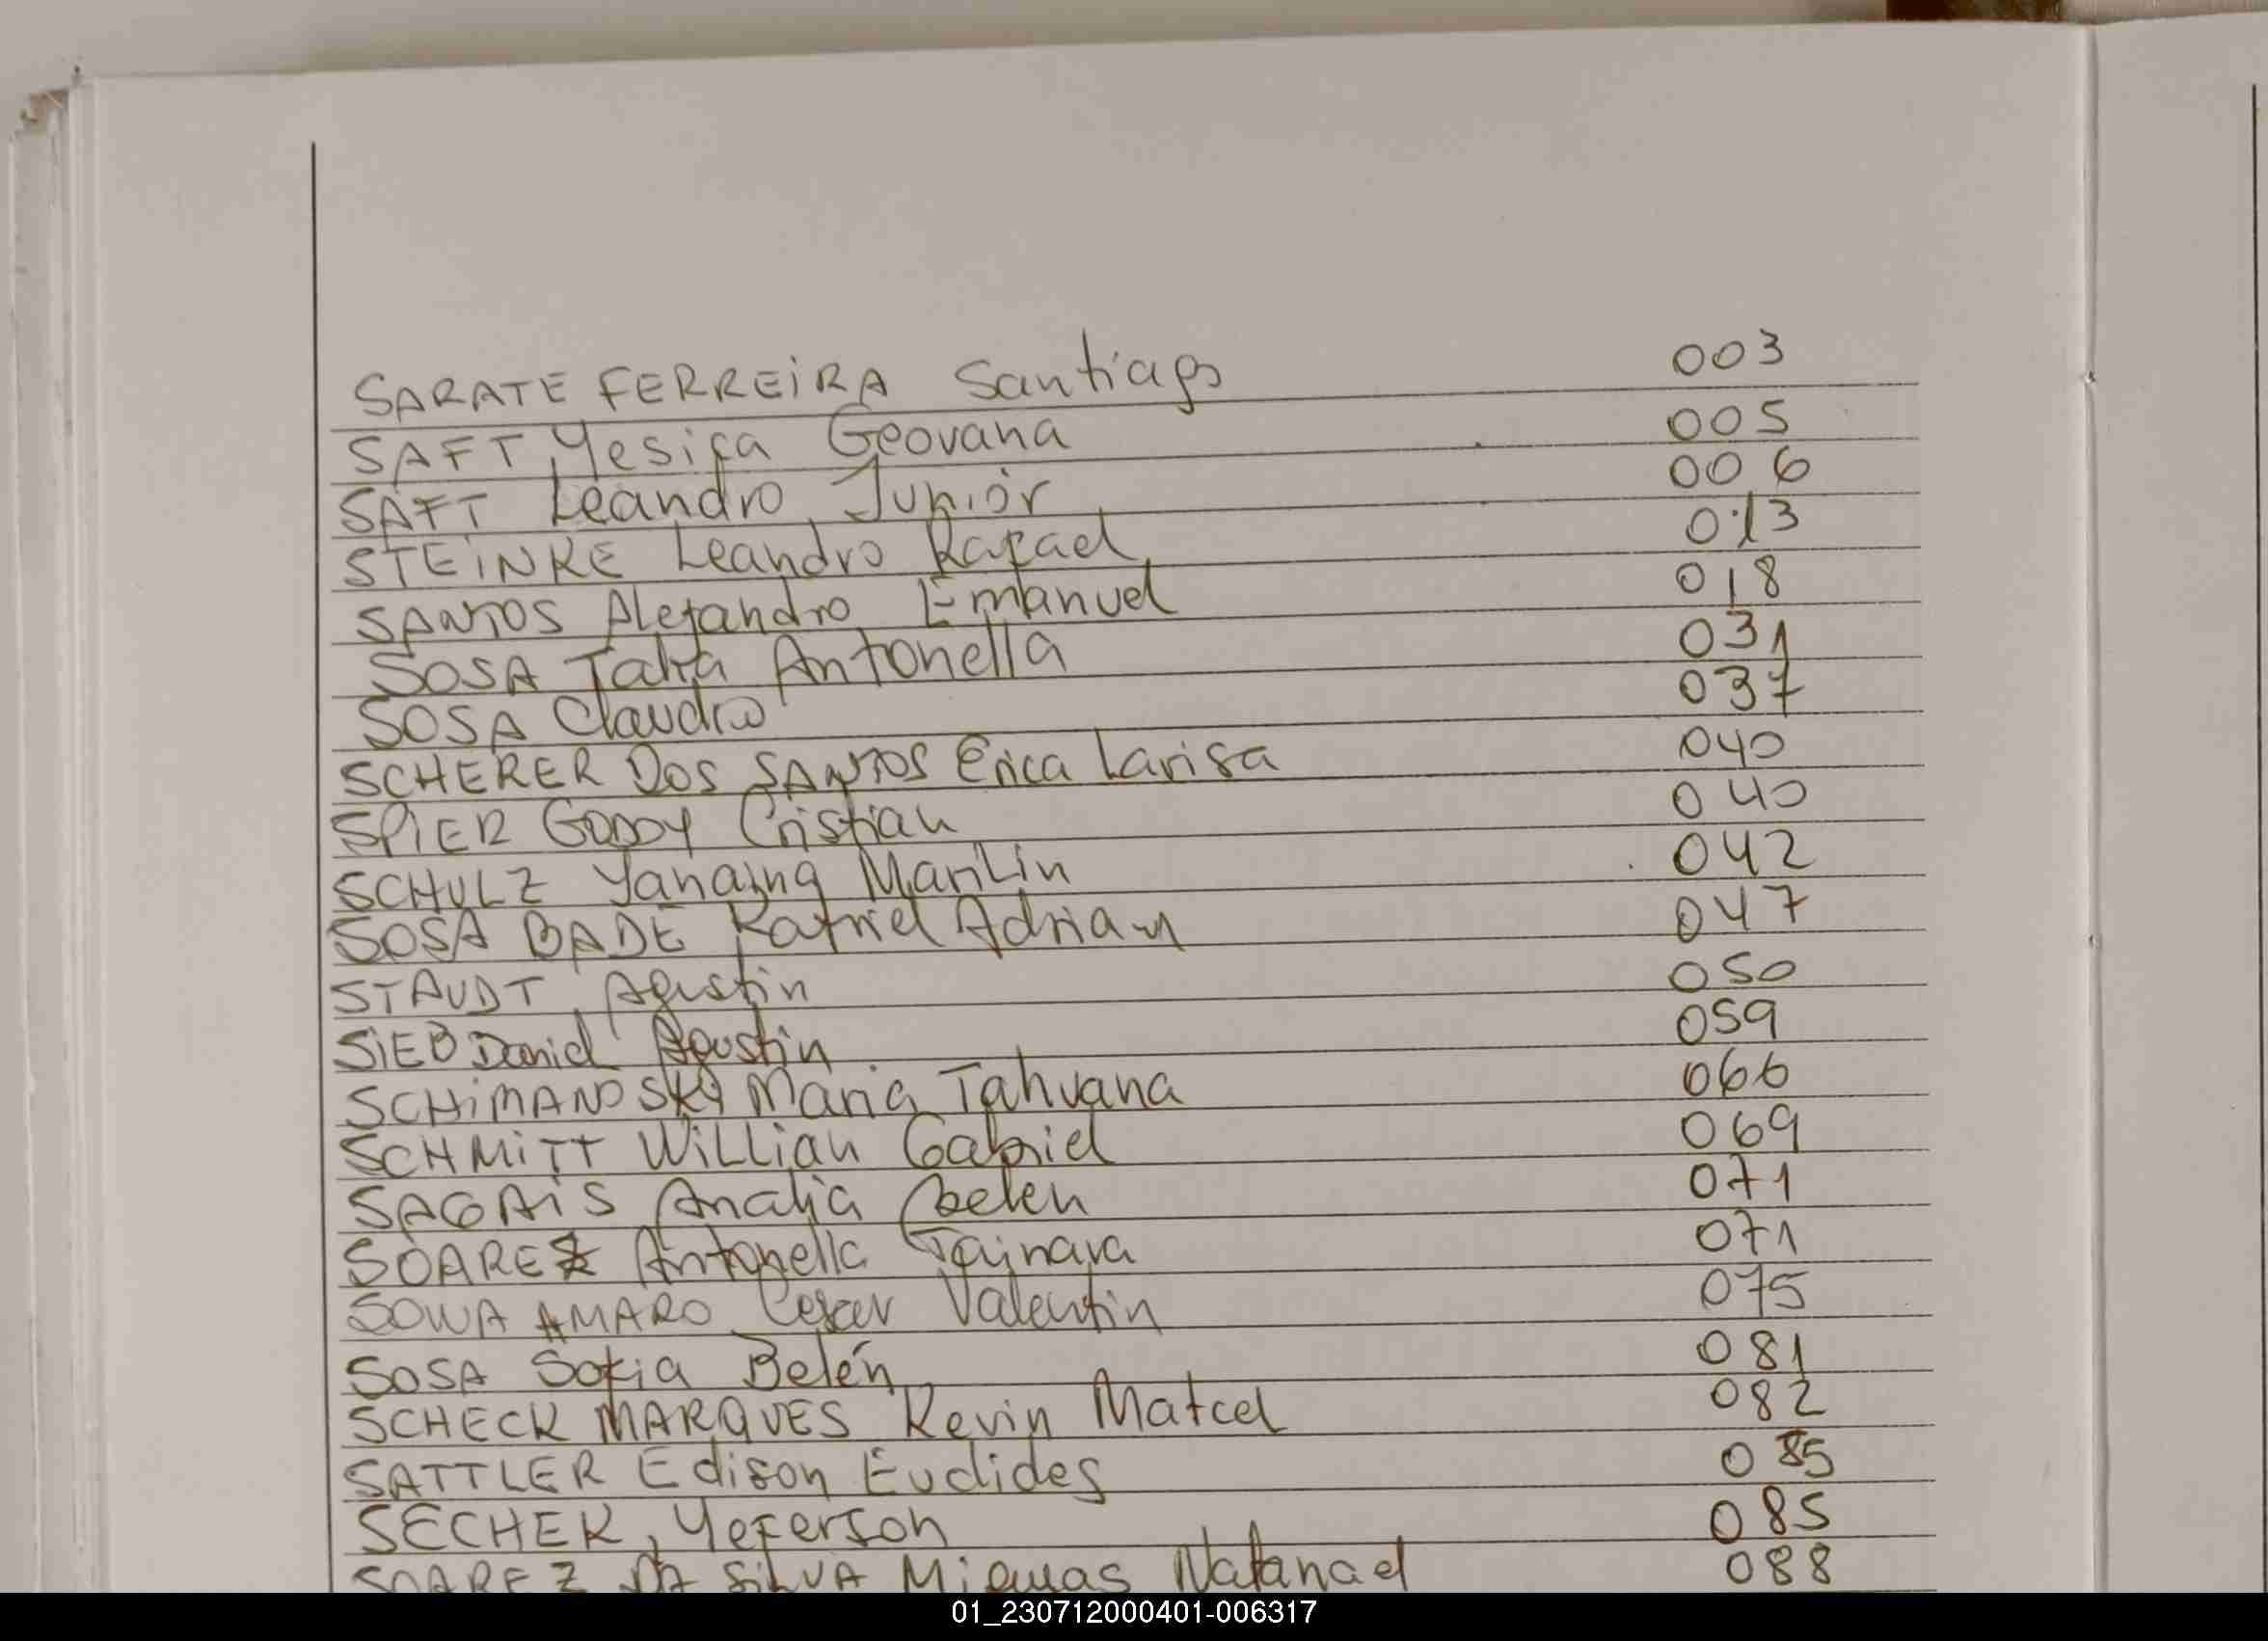 SARATE FERREIRA Santiago 003
SAFT, Yesica Geovana 005
SAFT Leandro Junior 006
STEINKE Leandro Rafael 013
SANTOS Alejandro Emanuel 018
SOSA Talia Antonella 031
SOSA Claudio 037
SCHERER DOS SANTOS Erica Larisa 040
SPIER GODOY Cristian 040
SCHULZ Marilin 042
SOSA BADE Adrian 047
STAUDT Agustin 050
SIEB Daniel Agustin 059
SCHIMANOSKY Maria Tahuana 066
SCHMITT Willian Gabriel 069
SAGAIS Analia Belen 071
SOAREZ Antonella Tainara 071
SOWA AMARO Cesar Valentin 075
SOSA Sofia Belén 081
SCHECK MARQUES Kevin Marcel 082
SATTLER Edison Euclides 085
SECHER, Yeferson 085
SOAREZ DA SILVA Miqueas Natanael 088
01_230712000401-006317